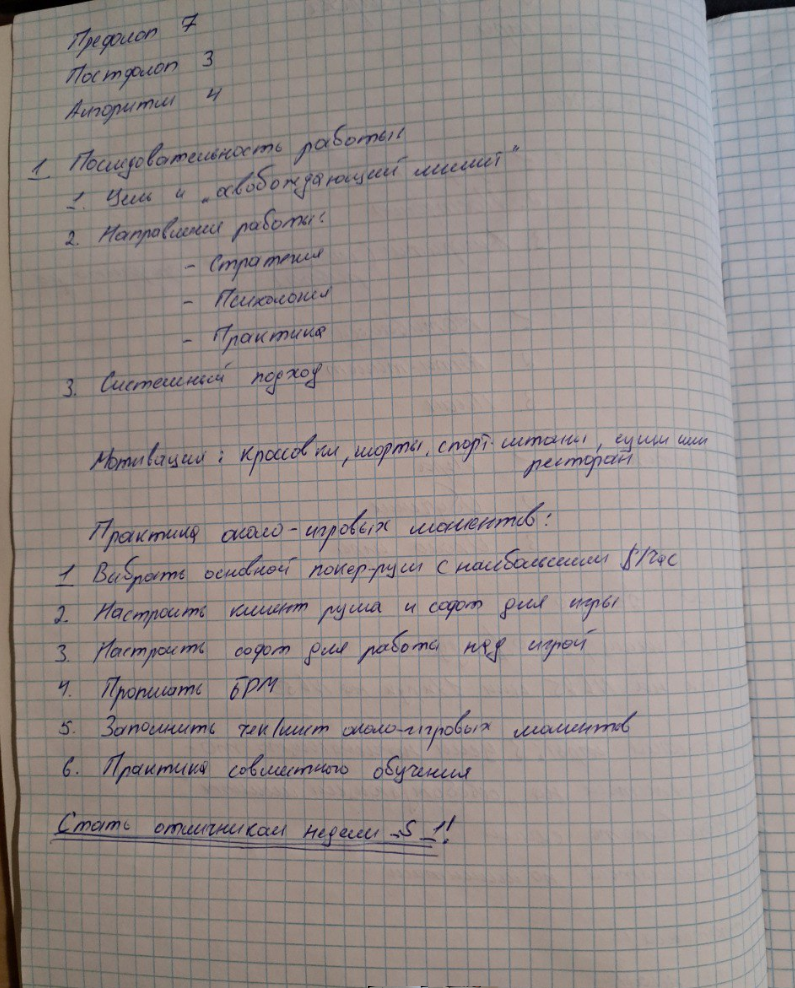 Префлоп 7
Постфлоп 3
Алгоритм 4
1 Последовательность работы:
1. Цель и „освобождающий лимит"
2. Направления работы:
- Стратегия
- Психология
- Практика
3. Системный подход
Мотивация: кроссовки, шорты, спорт-штаны, суши или
ресторан
Практика около-игровых моментов:
1 Выбрать основной покер-рум с наибольшим $/час
2. Настроить клиент рума и софт для игры
3. Настроить софт для работы над игрой
4. Прописать БРМ
5. Заполнить чек/лист около-игровых моментов
6. Практика совместного обучения
Стать отличником недели